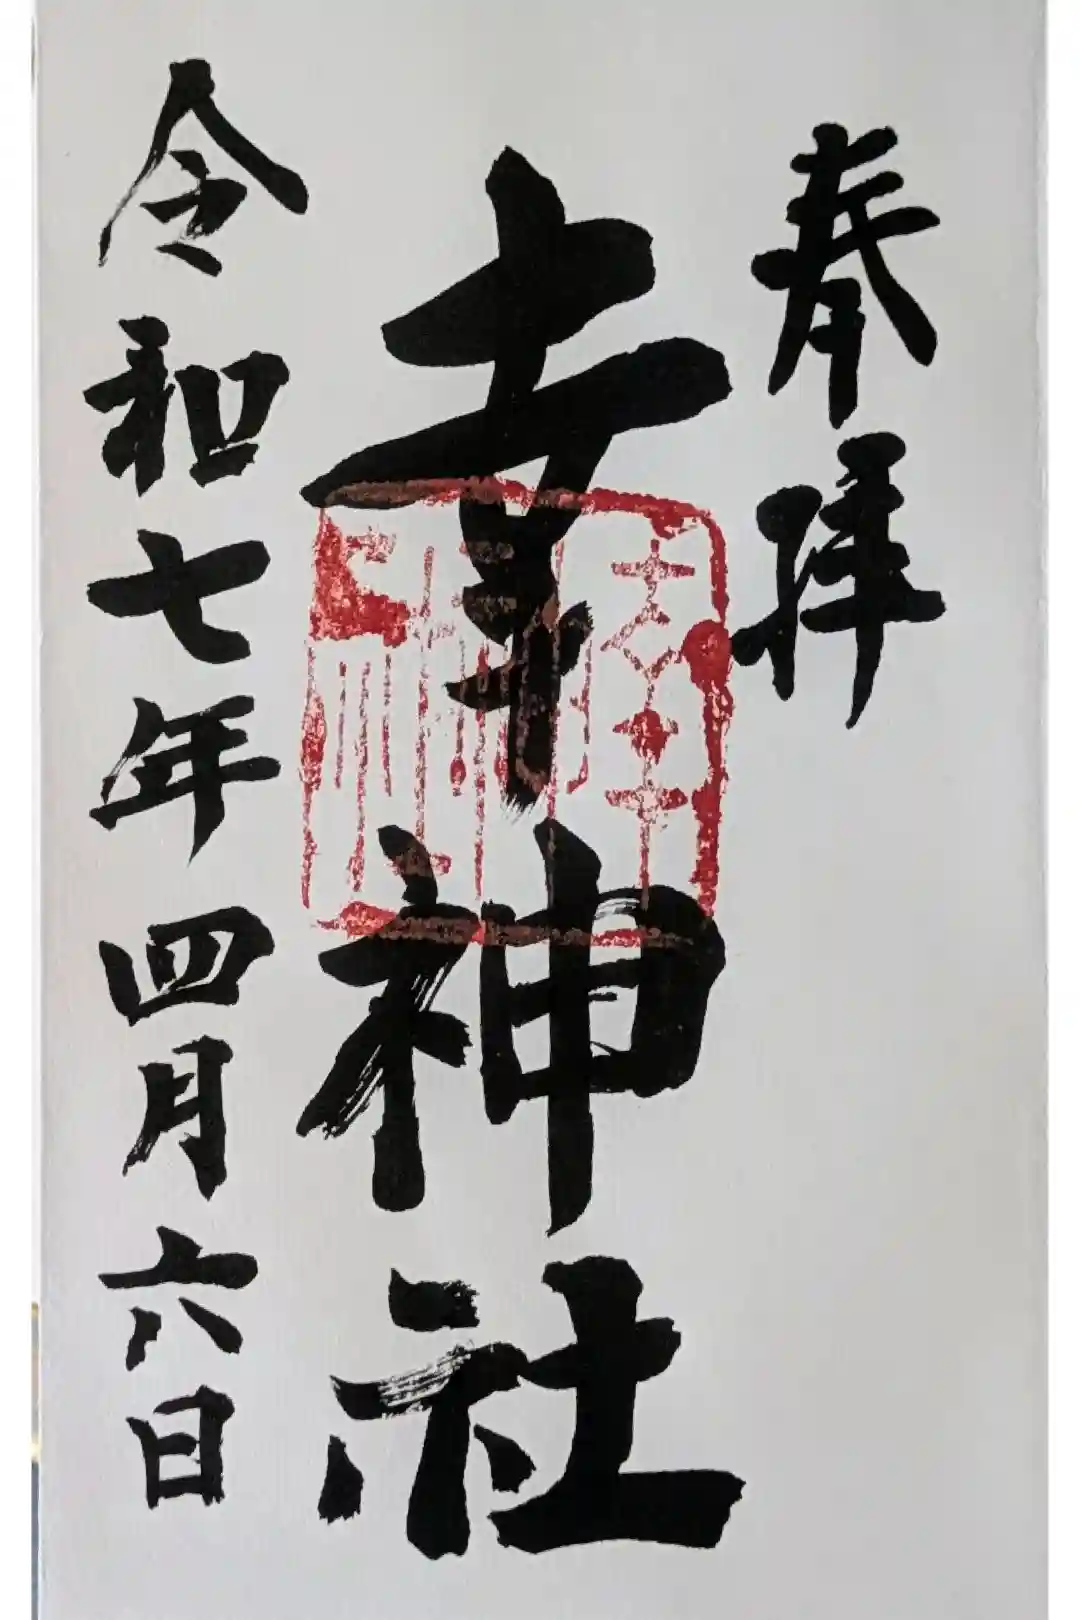 奉拝
幸神社
令和七年四月六日